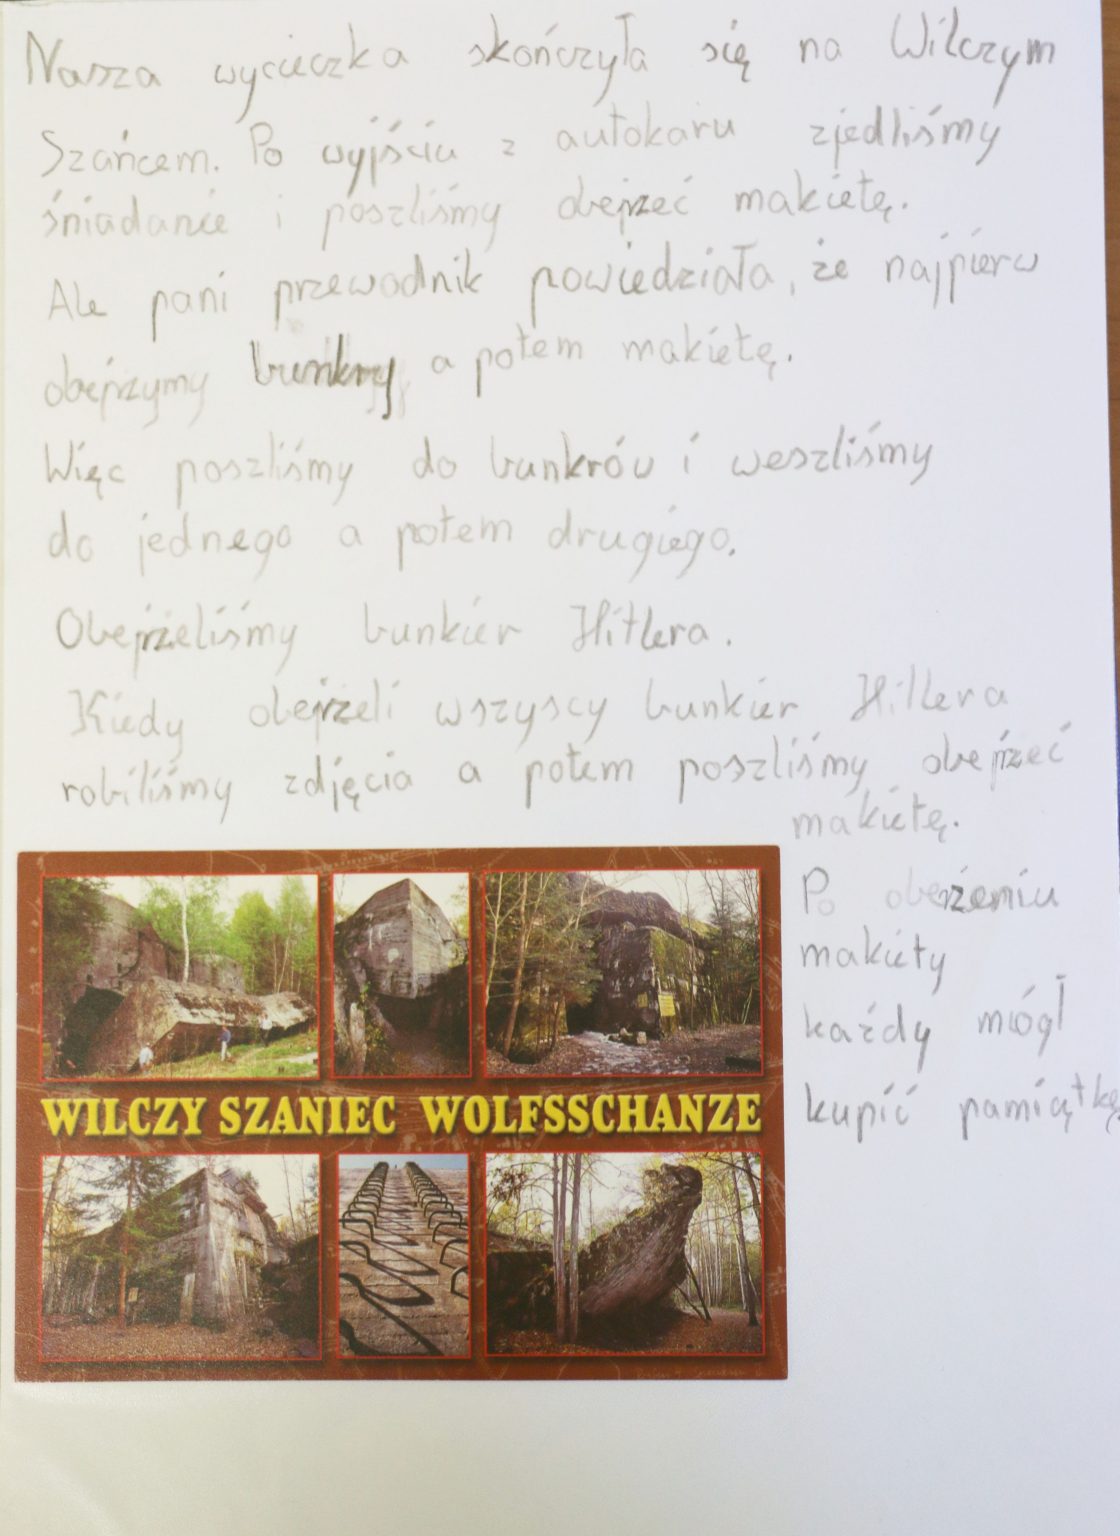 Nasza wycieczka skończyła się na Wilczym
Szańcem. Po wyjściu z autokaru zjedliśmy
śniadanie i poszliśmy obejrzeć makietę.
Ale pani przewodnik powiedziała, że najpierw
obejrzymy bunkry a potem makietę.
Więc poszliśmy do bunkrów i weszliśmy
do jednego a potem drugiego.
Obejrzeliśmy bunkier Hitlera.
Kiedy obejrzeli wszyscy bunkier Hitlera
robiliśmy zdjęcia a potem poszliśmy obejrzeć
makietę.
Po obejrzeniu
makiety
każdy mógł
kupić pamiątkę
WILCZY SZANIEC WOLFSSCHANZE